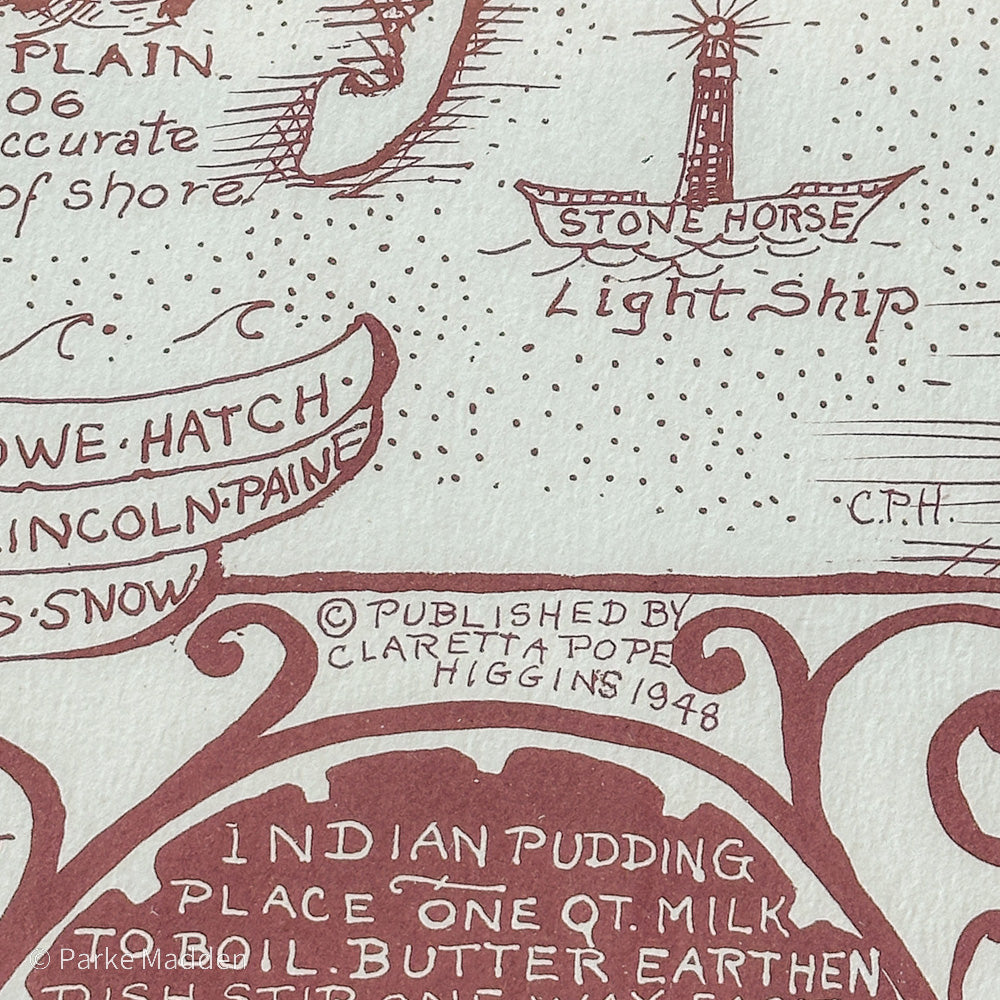 PLAIN
06
ccurate
of shore.
STONE HORSE
Light Ship
OWE · HATCH ·
LINCOLN · PAINE
S · SNOW
C.P.H.
© PUBLISHED BY
CLARETTA POPE
HIGGINS 1948
INDIAN PUDDING
PLACE ONE QT. MILK
TO BOIL. BUTTER EARTHEN
DISH STIR ONE WAY
© Parke Madden